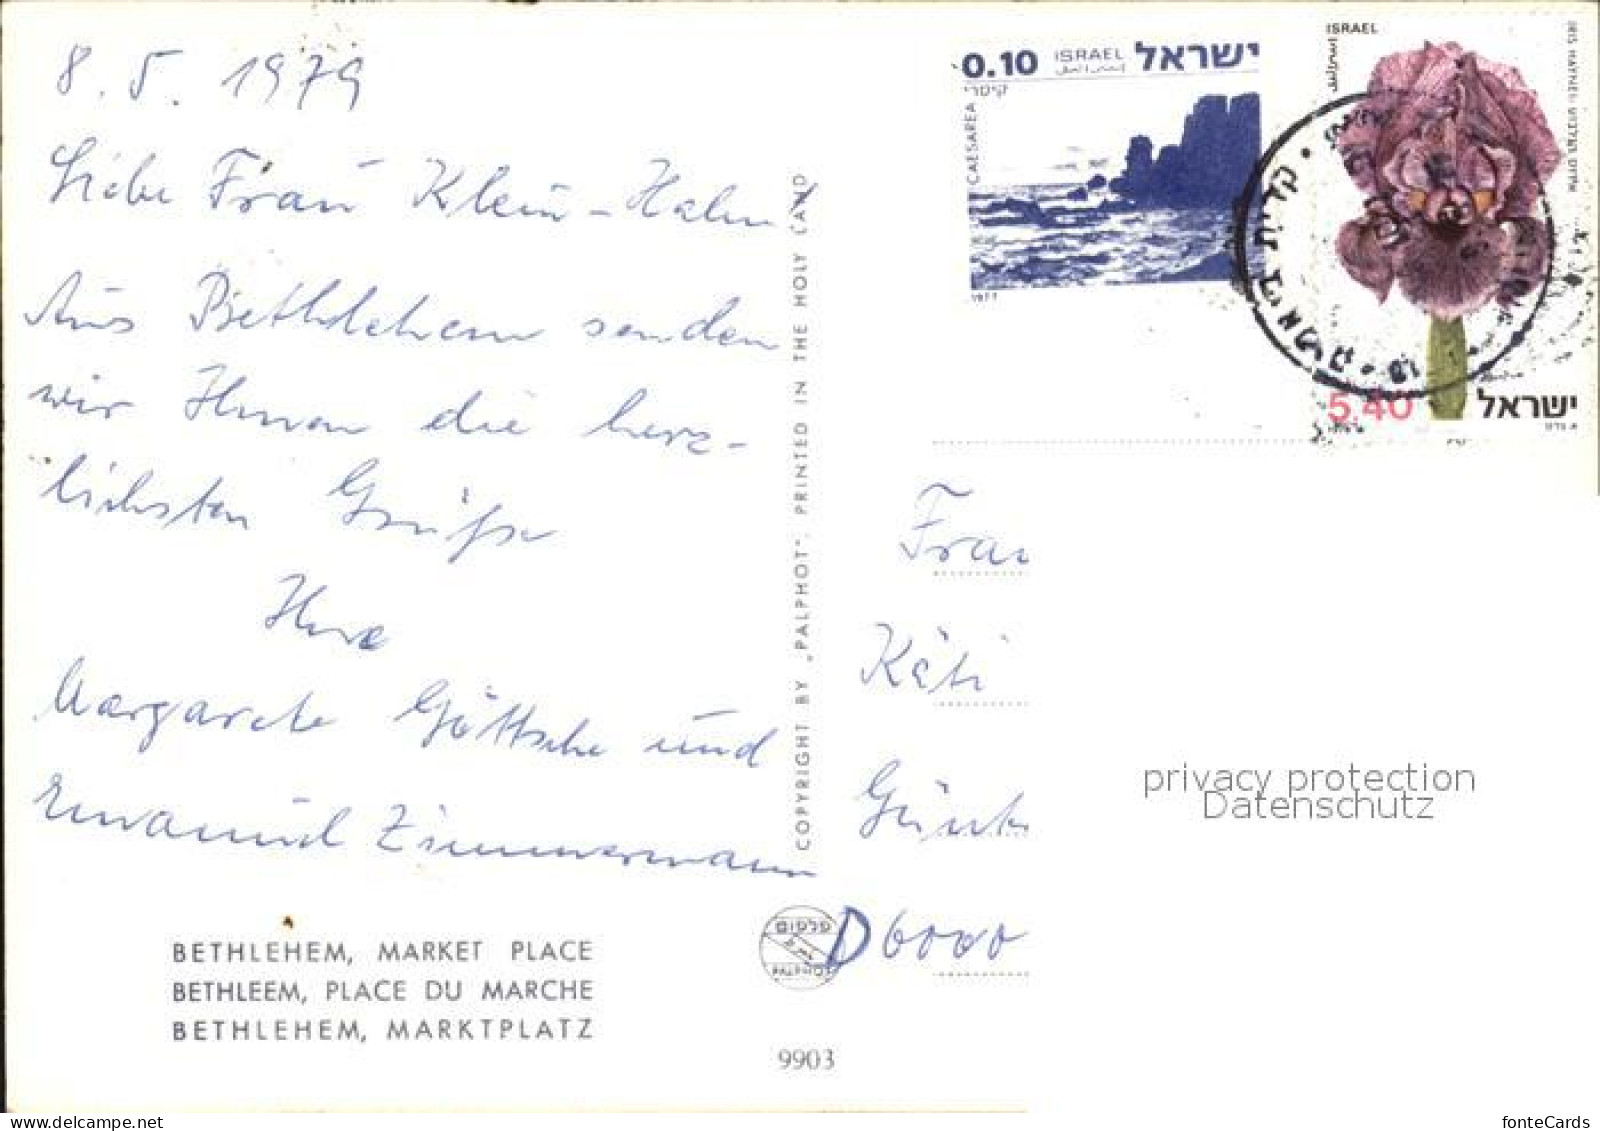 8. 5. 1979
Liebe Frau Klein-Hahn
Aus Bethlehem senden
wir Ihnen die herz-
lichsten Grüße
Ihre
Margarete Göttsche und
Emanuel Zimmermann
BETHLEHEM, MARKET PLACE
BETHLEEM, PLACE DU MARCHE
BETHLEHEM, MARKTPLATZ
COPYRIGHT BY „PALPHOT". PRINTED IN THE HOLY LAND
9903
0.10 ISRAEL ישראל
اسرائيل
קיסרי
CAESAREA
1977
ISRAEL
اسرائيل
5.40 ישראל
קרית
Frau
Käti
D 6000
פלפוט
privacy protection
Datenschutz
fonteCards